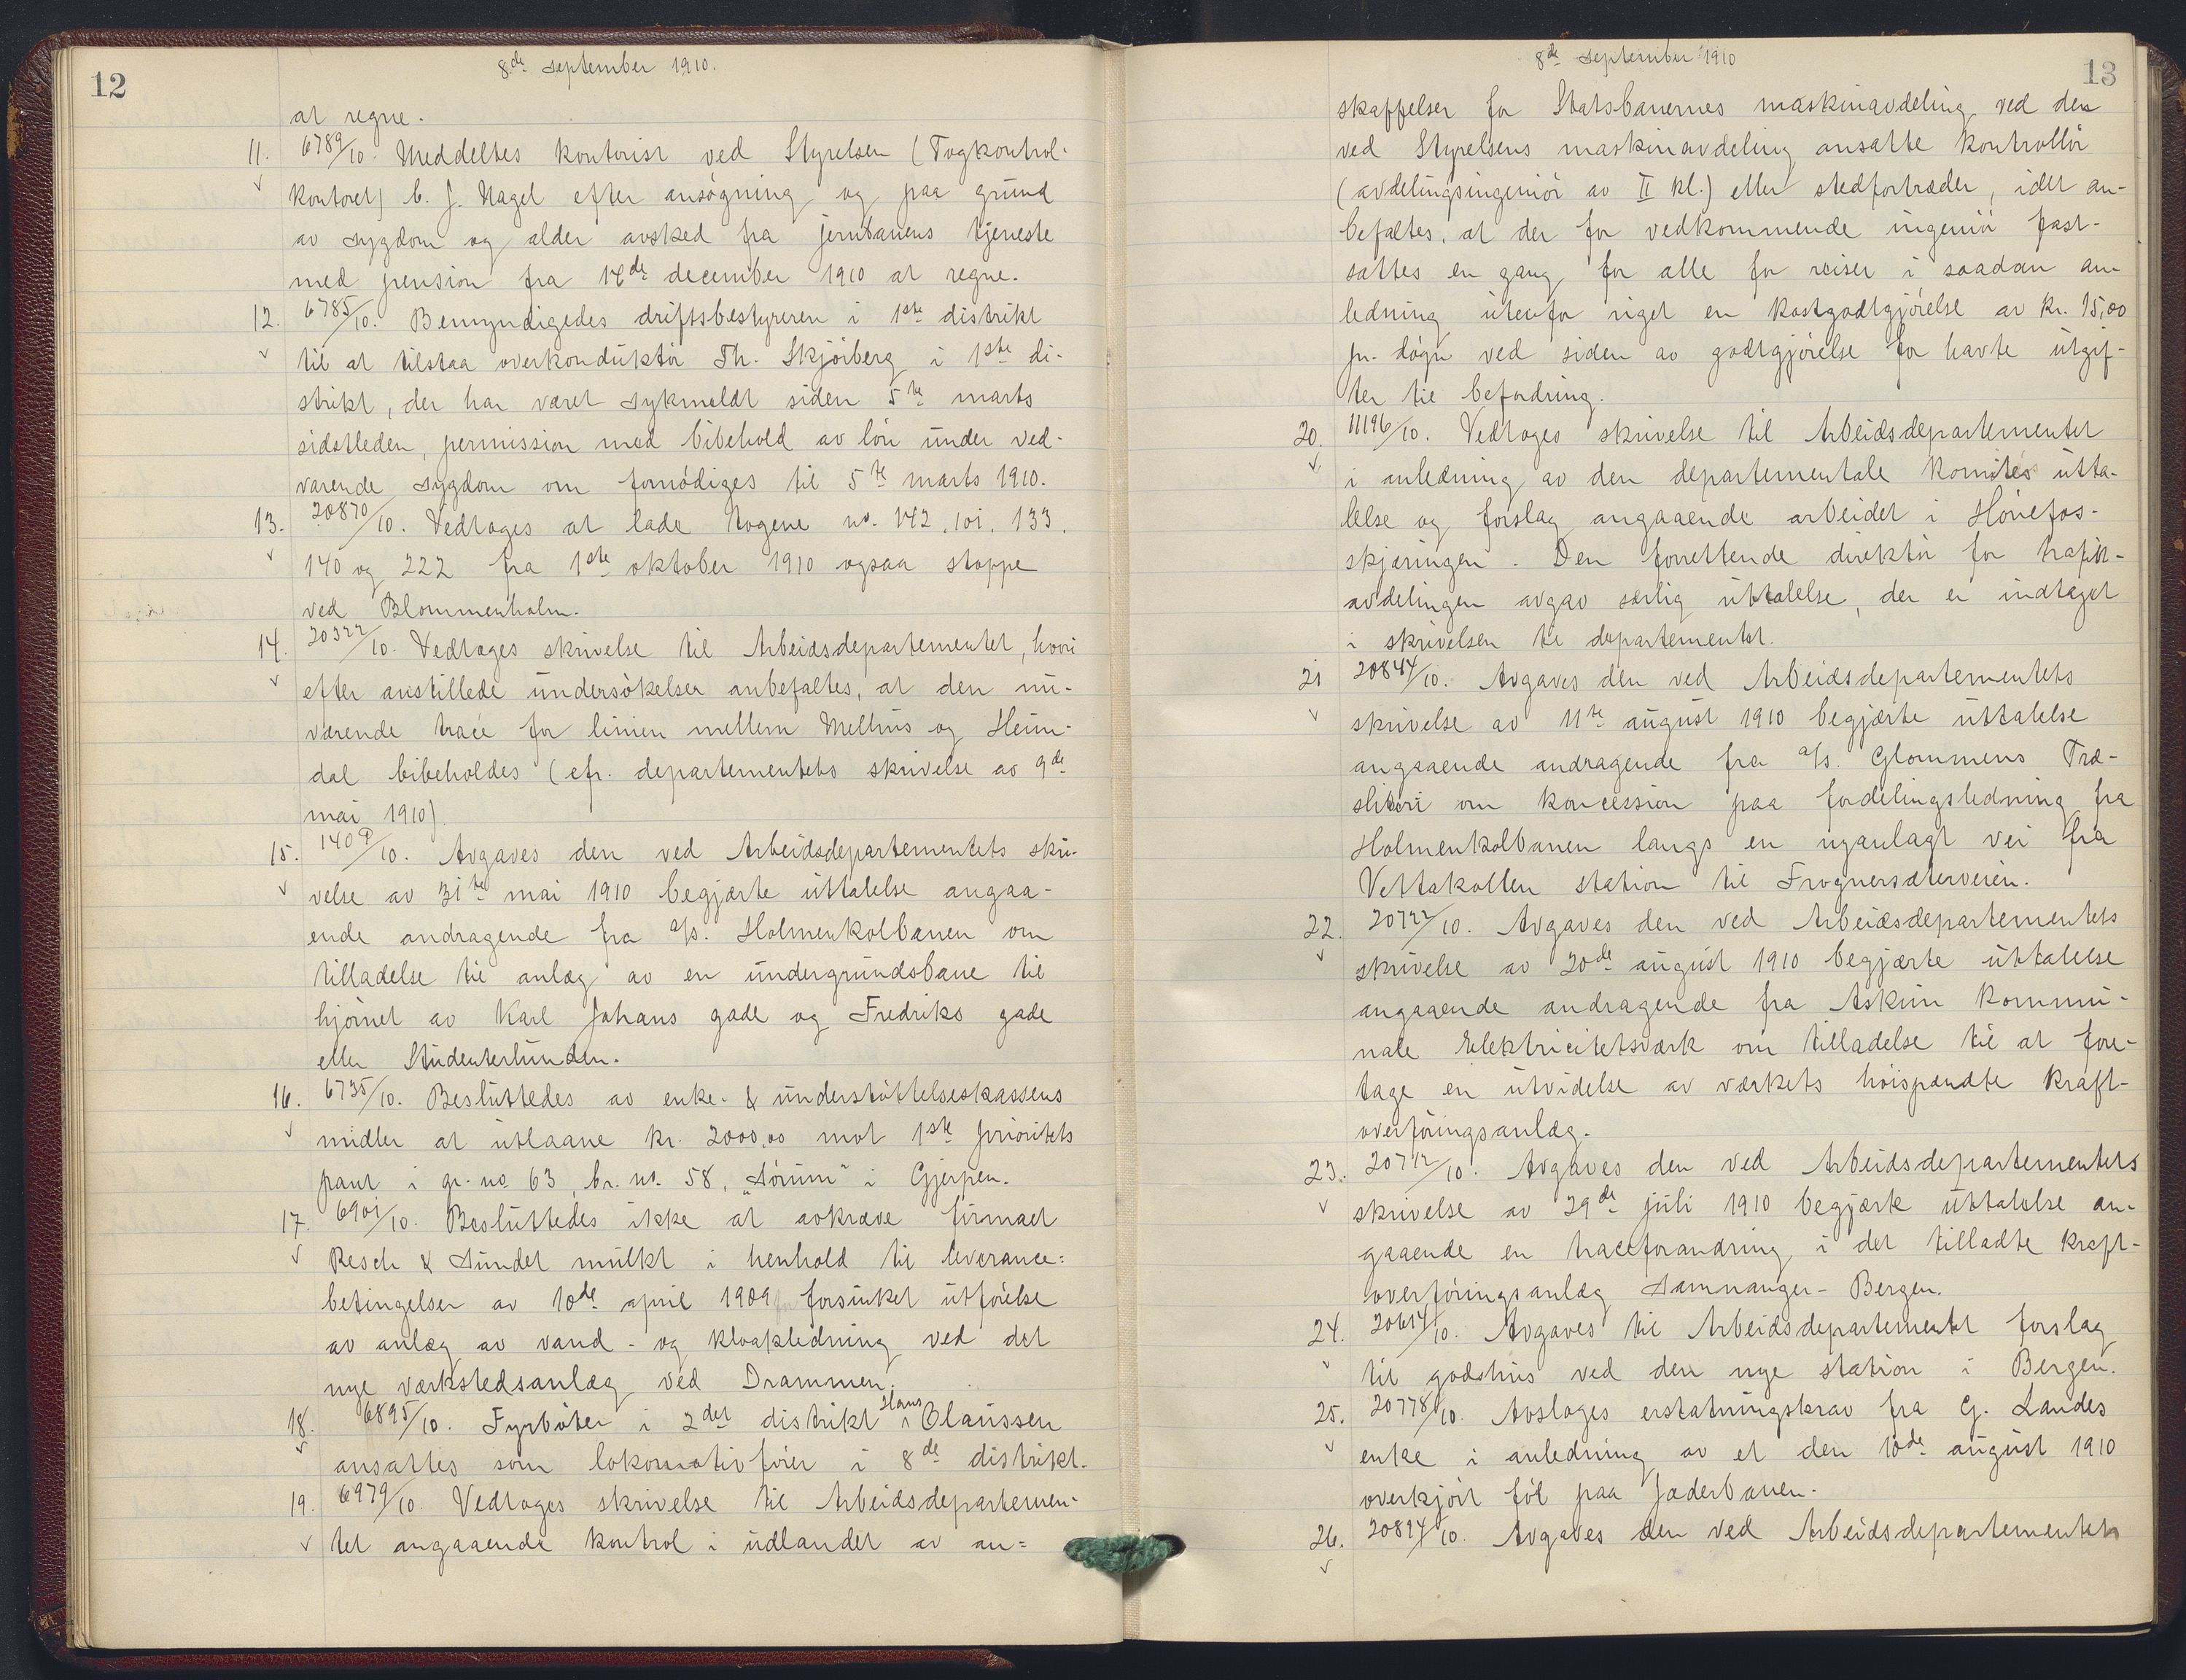 12
8de september 1910.
at regne.
11. 6789/10. Meddeltes kontorist ved Styrelsen (Togkontrol-
kontoret) C. J. Nagel efter ansøgning og paa grund
av sygdom og alder avsked fra jernbanens tjeneste
med pension fra 14de december 1910 at regne.
12. 6785/10. Bemyndigedes driftsbestyreren i 1ste distrikt
til at tilstaa overkonduktør Th. Skjøiberg i 1ste di-
strikt, der har været sykmeldt siden 5te marts
sidstleden, permission med bibehold av løn under ved-
varende sygdom om fornødiges til 5te marts 1910.
13. 20870/10. Vedtoges at lade togene no. 142, 101, 133,
140 og 222 fra 1ste oktober 1910 ogsaa stoppe
ved Blommenholm.
14. 20322/10. Vedtoges skrivelse til Arbeidsdepartementet, hvori
efter anstillede undersøkelser anbefaltes, at den nu-
værende tracé for linien mellem Melhus og Heim-
dal bibeholdes (cfr. departementets skrivelse av 9de
mai 1910).
15. 1409/10. Avgaves den ved Arbeidsdepartementets skri-
velse av 31te mai 1910 begjærte uttalelse angaa-
ende andragende fra a/s. Holmenkolbanen om
tilladelse til anlæg av en undergrundsbane til
hjørnet av Karl Johans gade og Fredriks gade
eller Studenterlunden.
16. 6735/10. Besluttedes av enke- & understøttelseskassens
midler at utlaane kr. 2000,00 mot 1ste prioritets
pant i gr. no 63, br. no. 58, "Sørum" i Gjerpen.
17. 6901/10. Besluttedes ikke at avkræve firmaet
Resch & Sundet mulkt i henhold til leverance-
betingelser av 10de april 1909 for forsinket utførelse
av anlæg av vand- og kloakledning ved det
nye værkstedsanlæg ved Drammen.
18. 6895/10. Fyrbøter i 2det distrikt Hans Olaussen
ansattes som lokomotivfører i 8de distrikt.
19. 6979/10. Vedtoges skrivelse til Arbeidsdepartemen-
tet angaaende kontrol i udlandet av an-
8de september 1910
13
skaffelser for Statsbanernes maskinavdeling ved den
ved Styrelsens maskinavdeling ansatte kontrollør
(avdelingsingeniør av II kl.) eller stedfortræder, idet an-
befaltes, at der for vedkommende ingeniør fast-
sattes en gang for alle for reiser i saadan an-
ledning utenfor riget en kostgodtgjørelse av kr. 15,00
pr. døgn ved siden av godtgjørelse for havte utgif-
ter til befordring.
20. 11196/10. Vedtoges skrivelse til Arbeidsdepartementet
i anledning av den departementale komités utta-
lelse og forslag angaaende arbeidet i Hønefos-
skjæringen. Den forrettende direktør for trafik-
avdelingen avgav særlig uttalelse, der er indtaget
i skrivelsen til departementet.
21 20844/10. Avgaves den ved Arbeidsdepartementets
skrivelse av 11te august 1910 begjærte uttalelse
angaaende andragende fra a/s. Glommens Træ-
sliberi om koncession paa fordelingsledning fra
Holmenkolbanen langs en nyanlagt vei fra
Vettakollen station til Frognersæterveien.
22. 20722/10. Avgaves den ved Arbeidsdepartementets
skrivelse av 20de august 1910 begjærte uttalelse
angaaende andragende fra Askim kommu-
nale Elektricitetsværk om tilladelse til at fore-
tage en utvidelse av værkets høispændte kraft-
overføringsanlæg.
23. 20712/10. Avgaves den ved Arbeidsdepartementets
skrivelse av 29de juli 1910 begjærte uttalelse an-
gaaende en traceforandring i det tilladte kraft-
overføringsanlæg Samnanger - Bergen.
24. 20614/10. Avgaves til Arbeidsdepartementet forslag
til godshus ved den nye station i Bergen.
25. 20778/10. Avsloges erstatningskrav fra G. Landes
enke i anledning av et den 10de august 1910
overkjørt føl paa Jæderbanen.
26. 20894/10. Avgaves den ved Arbeidsdepartementets